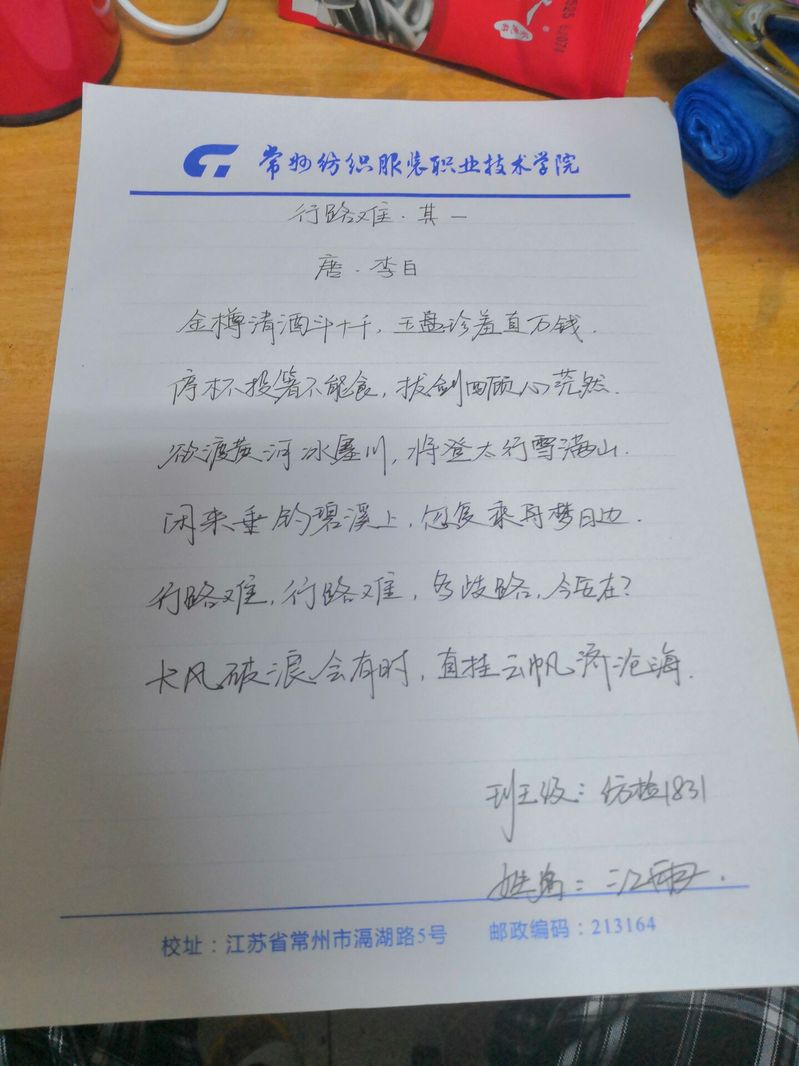 常州纺织服装职业技术学院
行路难·其一
唐·李白
金樽清酒斗十千，玉盘珍羞直万钱.
停杯投箸不能食，拔剑四顾心茫然.
欲渡黄河冰塞川，将登太行雪满山.
闲来垂钓碧溪上，忽复乘舟梦日边.
行路难，行路难，多歧路，今安在？
长风破浪会有时，直挂云帆济沧海.
班级：纺检1831
姓名：江
校址：江苏省常州市滆湖路5号 邮政编码：213164